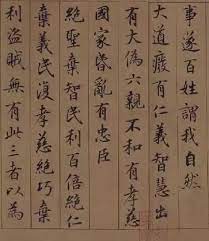 事遂百姓謂我自然
大道廢有仁義智慧出
有大偽六親不和有孝慈
國家昏亂有忠臣
絕聖棄智民利百倍絕仁
棄義民復孝慈絕巧棄
利盜賊無有此三者以為